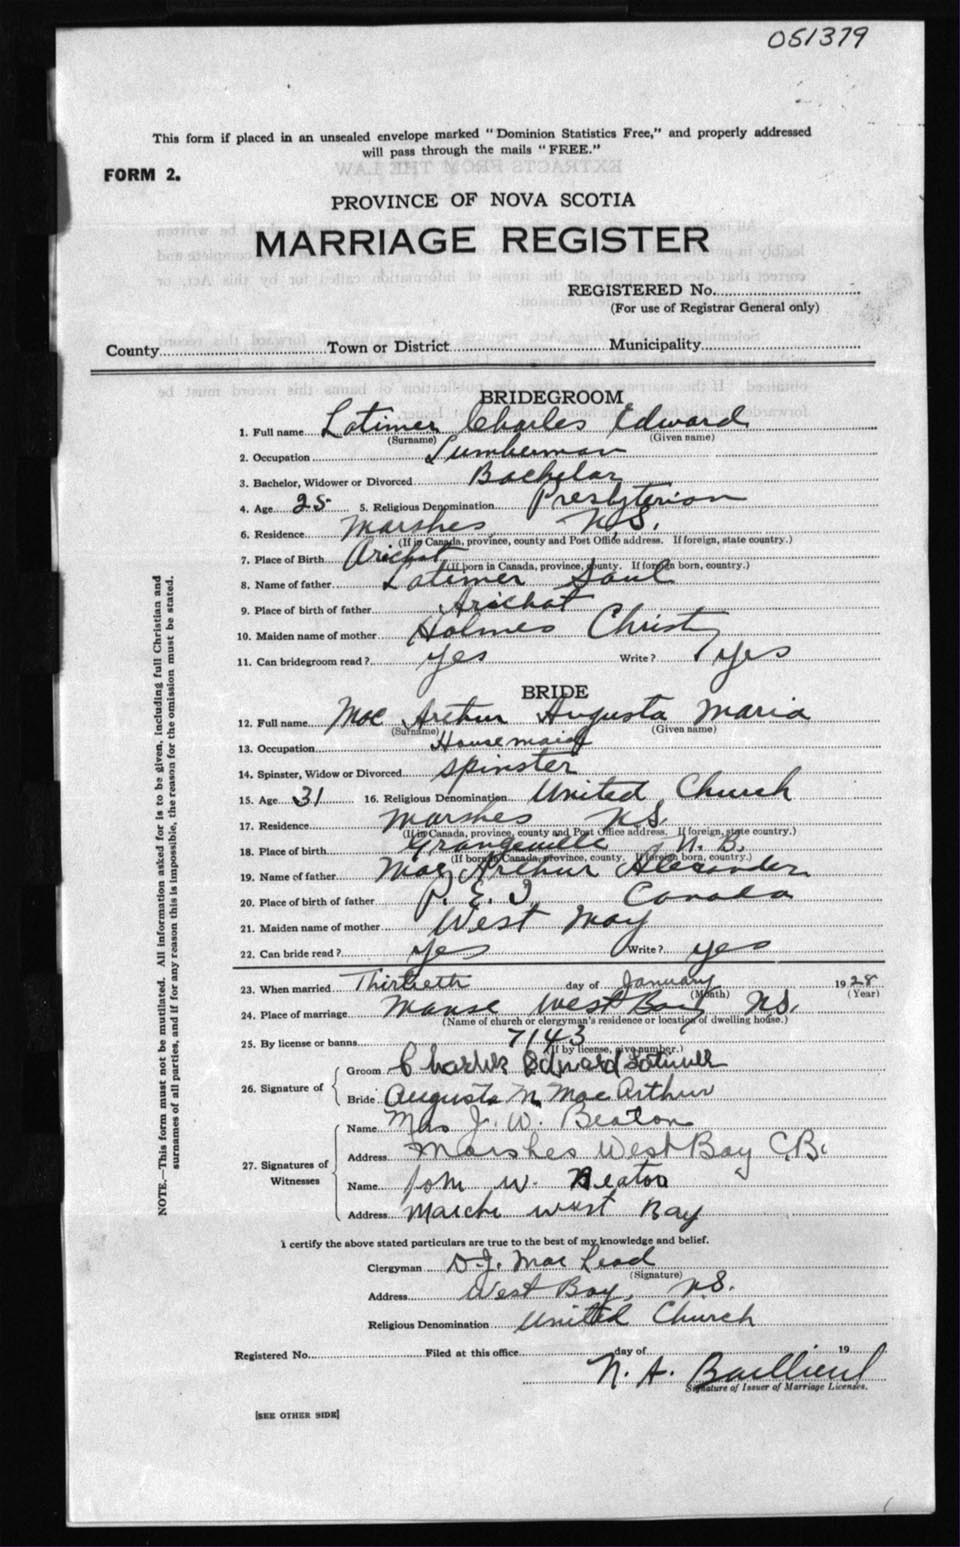 051379
This form if placed in an unsealed envelope marked "Dominion Statistics Free," and properly addressed
will pass through the mails "FREE."
FORM 2.
PROVINCE OF NOVA SCOTIA
MARRIAGE REGISTER
REGISTERED No.
(For use of Registrar General only)
County Town or District Municipality
BRIDEGROOM
1. Full name Latimer Charles Edward
(Surname) (Given name)
2. Occupation Lumberman
3. Bachelor, Widower or Divorced Bachelor
4. Age 25 5. Religious Denomination Presbyterian
6. Residence Marshes, N.S.
(If in Canada, province, county and Post Office address. If foreign, state country.)
7. Place of Birth Arichat
(If born in Canada, province, county. If foreign born, country.)
8. Name of father Latimer Saul
9. Place of birth of father Arichat
10. Maiden name of mother Holmes Christy
11. Can bridegroom read? yes Write? yes
BRIDE
12. Full name Mac Arthur Augusta Maria
(Surname) (Given name)
13. Occupation Housemaid
14. Spinster, Widow or Divorced spinster
15. Age 31 16. Religious Denomination United Church
17. Residence Marshes N.S.
(If in Canada, province, county and Post Office address. If foreign, state country.)
18. Place of birth Grangeville N.B.
(If born in Canada, province, county. If foreign born, country.)
19. Name of father Mac Arthur Alexander
20. Place of birth of father P. E. I Canada
21. Maiden name of mother West May
22. Can bride read? yes Write? yes
23. When married Thirtieth day of January 1928
(Month) (Year)
24. Place of marriage Manse West Bay N.S.
(Name of church or clergyman's residence or location of dwelling house.)
25. By license or banns 7143
(If by license, give number.)
26. Signature of
Groom Charles Edward Latimer
Bride Augusta M MacArthur
27. Signatures of Witnesses
Name Mrs J. W. Beaton
Address Marshes West Bay C.B.
Name John W. Beaton
Address West Bay
I certify the above stated particulars are true to the best of my knowledge and belief.
Clergyman D.J. MacLeod
(Signature)
Address West Bay, N.S.
Religious Denomination United Church
Registered No. Filed at this office day of 19
N. A.
Signature of Issuer of Marriage Licenses.
[SEE OTHER SIDE]
NOTE.—This form must not be mutilated. All information asked for is to be given, including full Christian and
surnames of all parties, and if for any reason this is impossible, the reason for the omission must be stated.